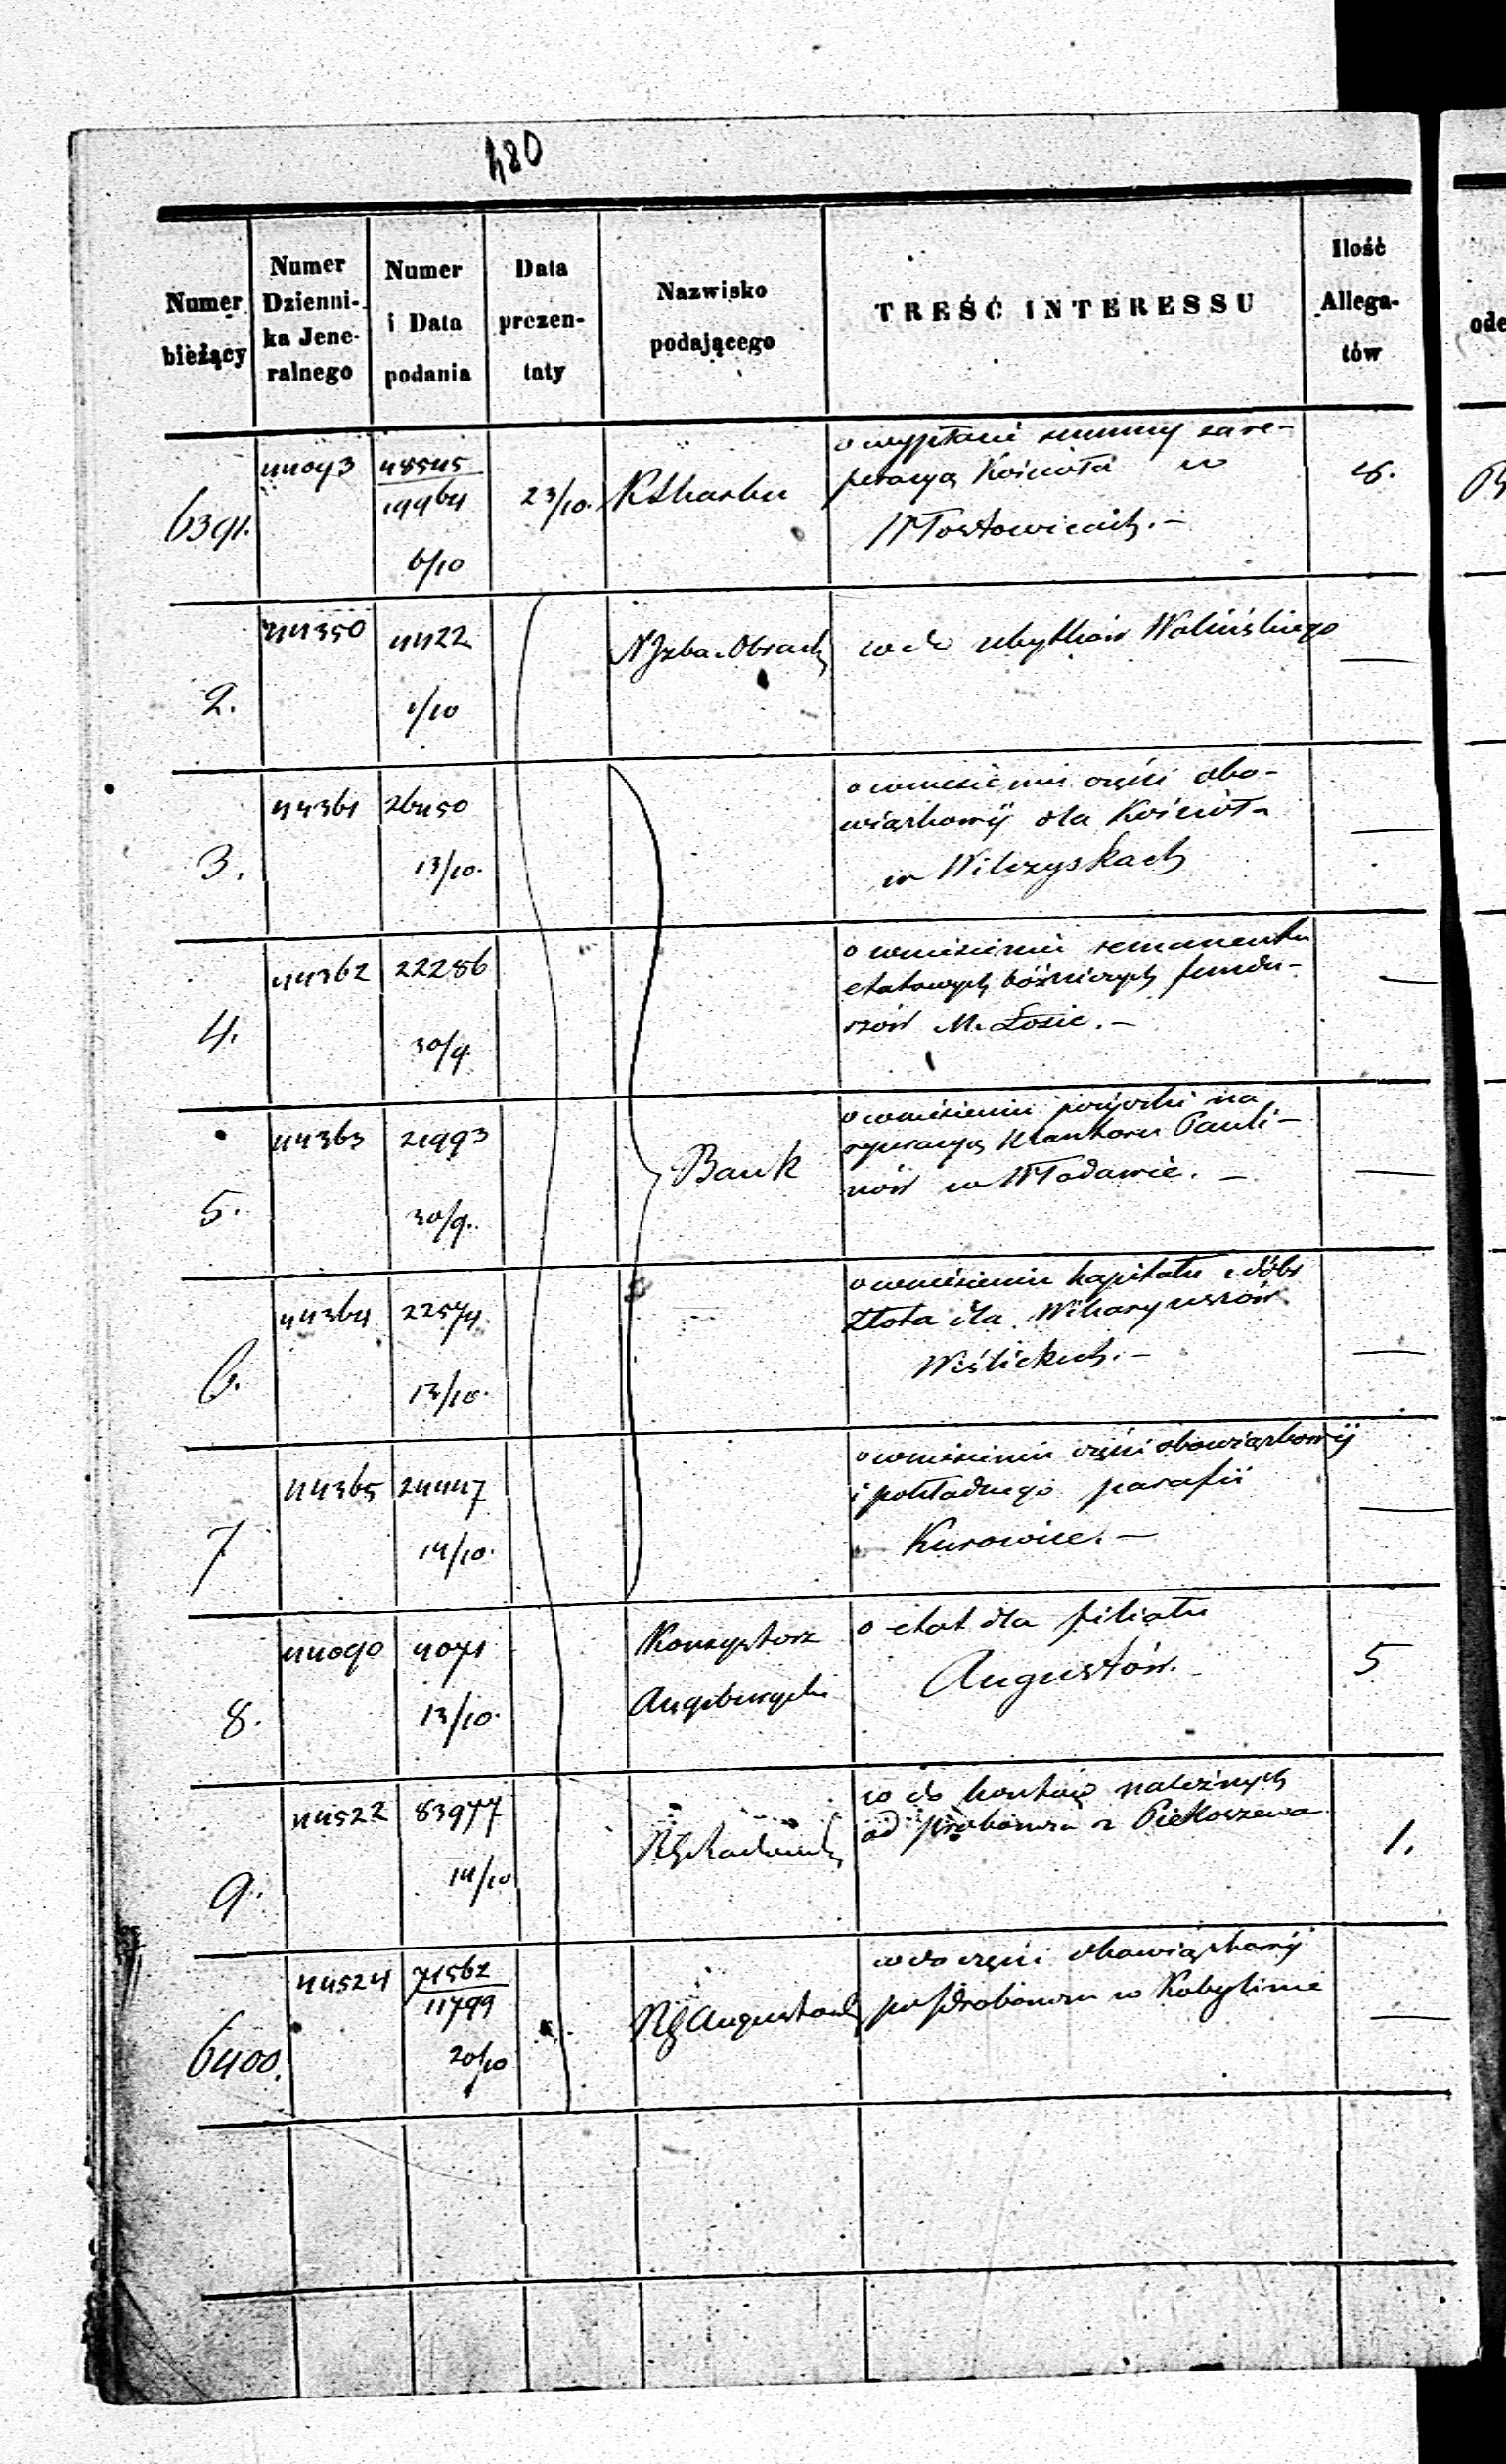 480
Numer bieżący
Numer Dzienni- ka Jene- ralnego
Numer i Data podania
Data prezen- taty
Nazwisko podającego
TREŚĆ INTERESSU
Ilość Allega- tów
ode
6391.
44093
48545
19964
6/10
23/10.
K Skarbu
o wypłacie summy za re-
peracyą Kościoła w
Włostowicach. –
8.
2.
44350
4422
1/10
N Izba Obrach
co do ubytków Wolińskiego
—
3.
44361
26450
13/10.
o wniesieniu części obo-
wiązkowej dla Kościoła
w Wilczyskach
—
4.
44362
22286
30/9.
o wniesieniu remanentu
etatowych bóżniczych fundu-
szów M. Łosic. –
—
5.
44363
21993
30/9.
Bank
o wniesieniu pożyczki na
reperacyą Klasztoru Pauli-
nów w Włodawie. –
—
6.
44364
22574
13/10.
o wniesieniu kapitału z dóbr
Złota dla Wikaryuszów
Wiślickich. –
—
7
44365
24447
14/10.
o wniesieniu części obowiązkowej
i pokładnego parafii
Kurowice. –
—
8.
44090
4071
13/10.
Konsystorz
Augsburgski
o etat dla filiału
Augustów.
5
9.
44522
83977
14/10
RG Radomski
co do kosztów należnych
od proboszcza z Piekoszewa
1.
6400.
44524
71562
11799
20/10
RG Augustows
co do części obowiązkowej
po proboszczu w Kobylinie
—